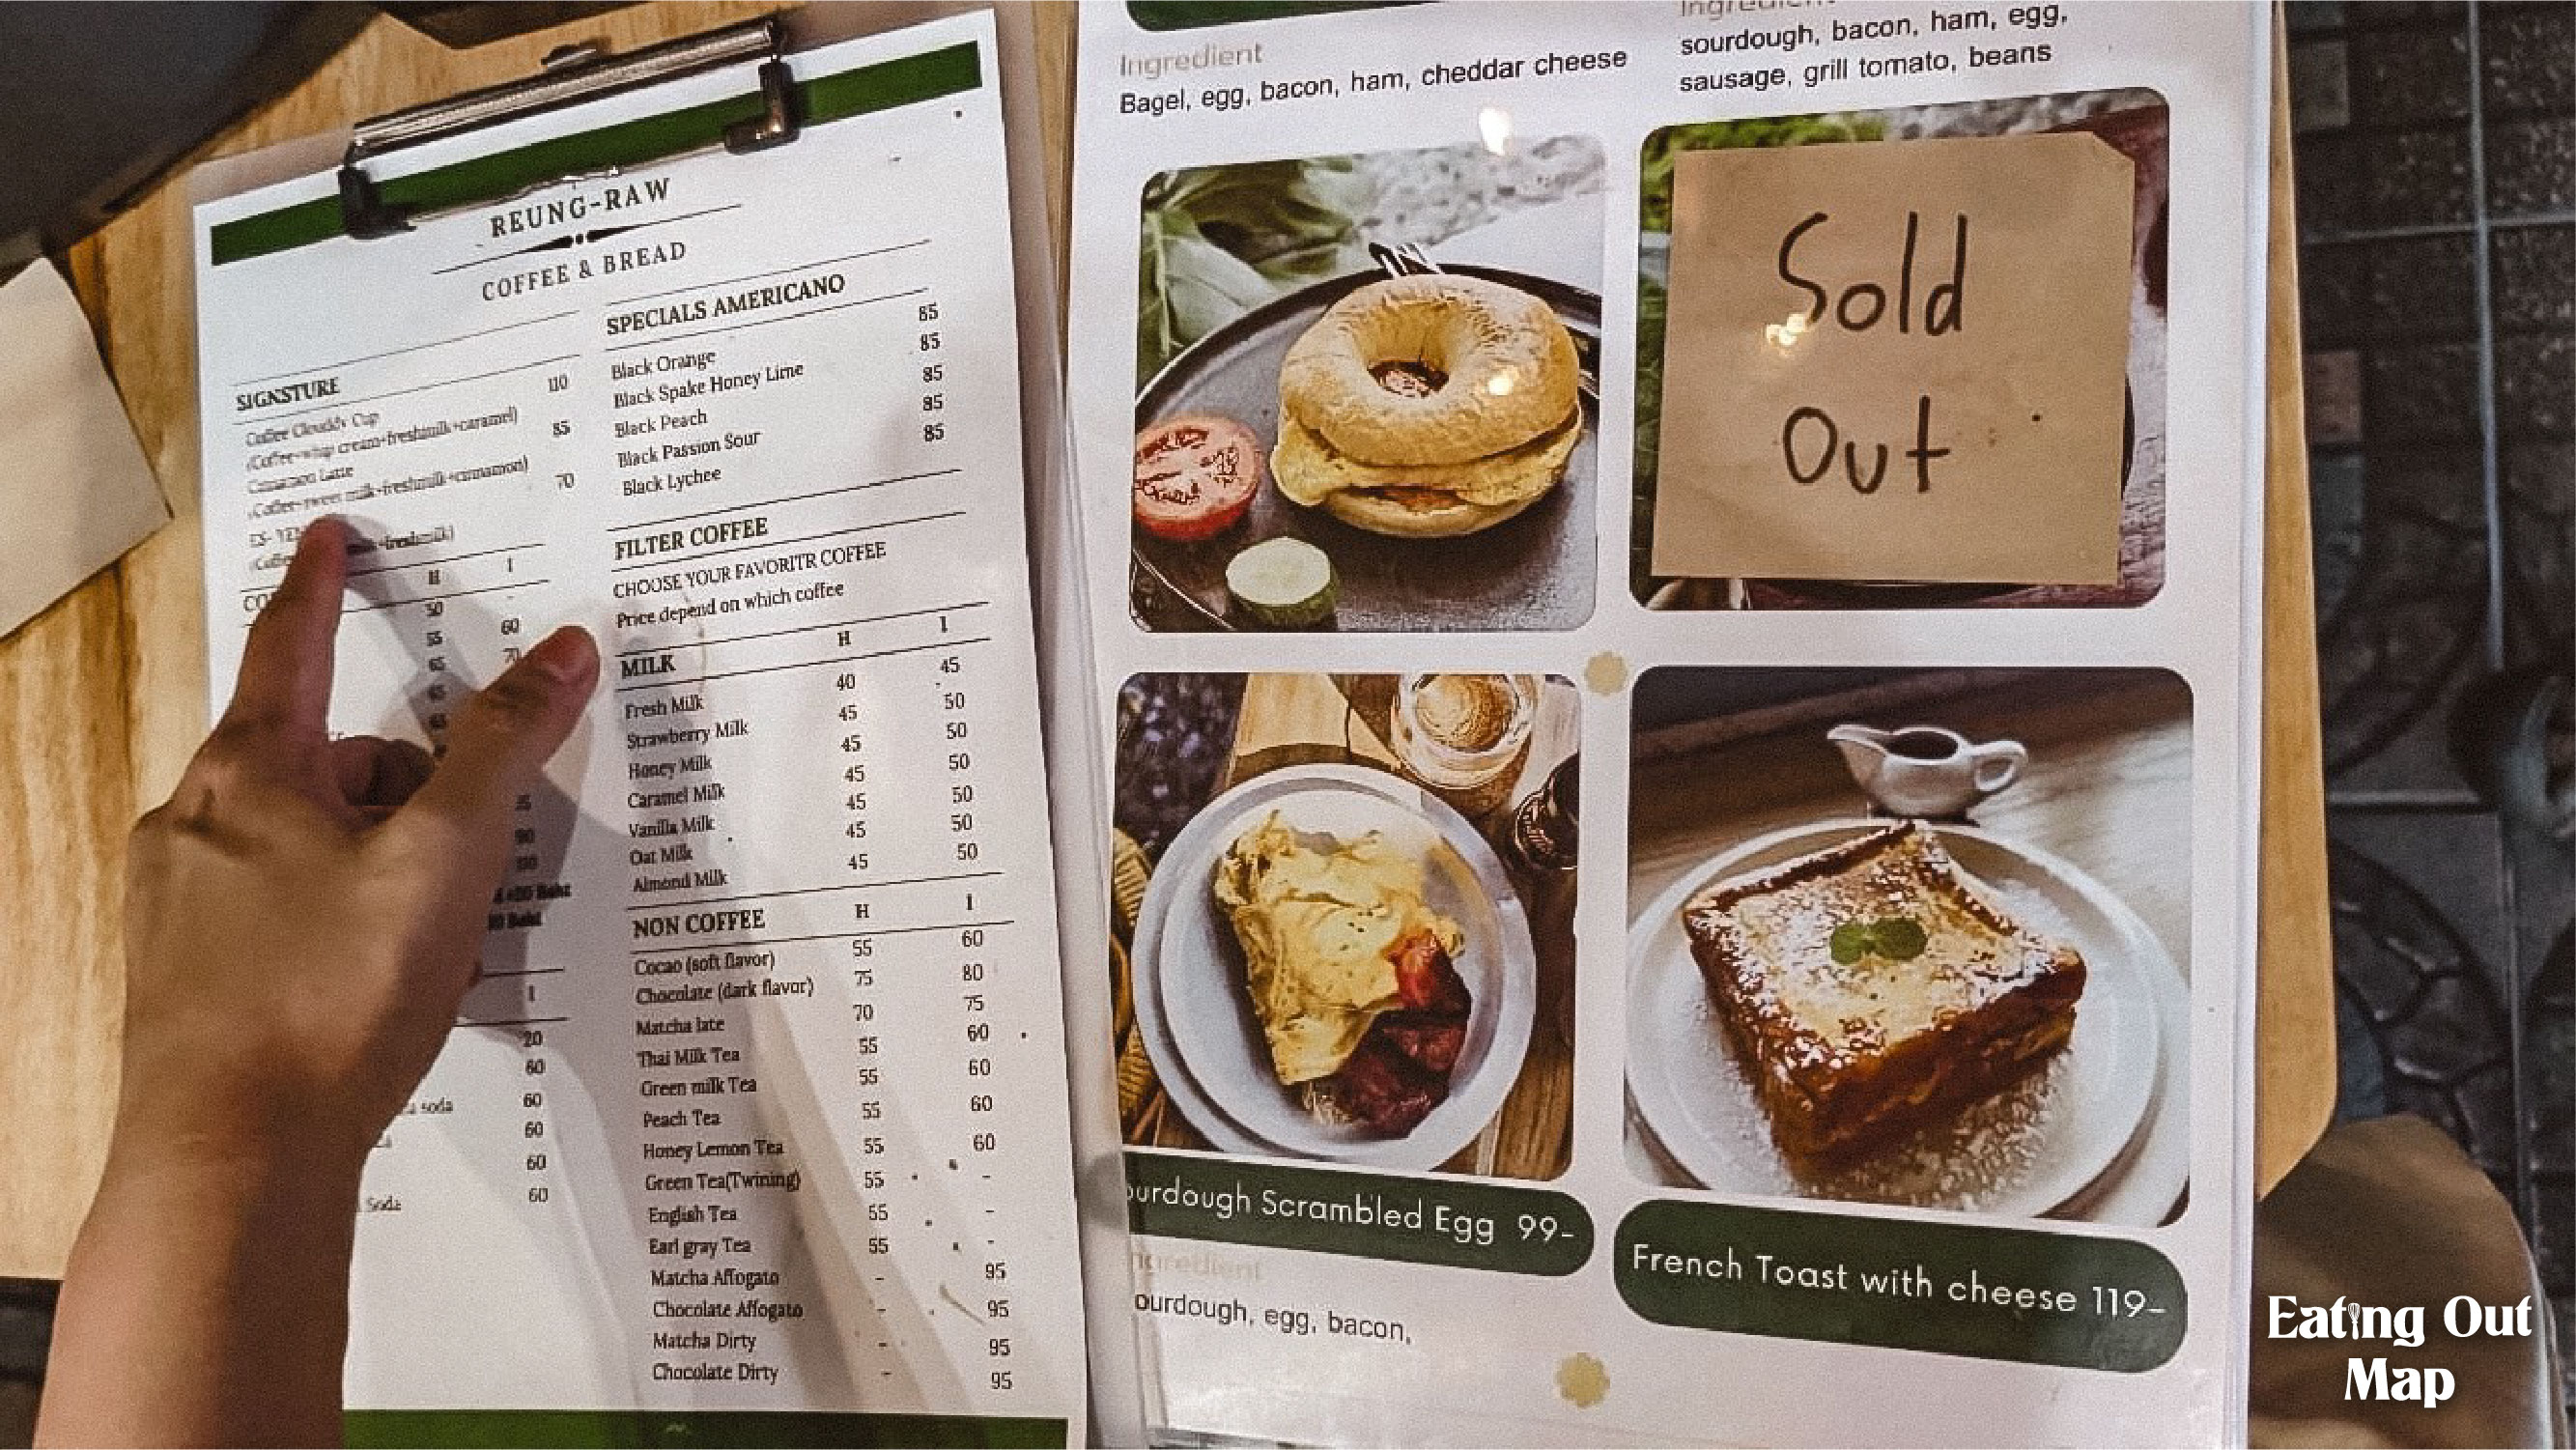 REUNG-RAW
COFFEE & BREAD
SIGNSTURE
Coffee Clouddy Cup 110
(Coffee+whip cream+freshmilk+caramel)
Cinnamon Latte 85
(Coffee+sweet milk+freshmilk+cinnamon)
ES- 70
(Coffee +freshmilk)
CO H I
50 -
55 60
65 70
65
65
35
90
110
Baht
Baht
I
20
60
soda 60
60
60
Soda 60
SPECIALS AMERICANO
Black Orange 85
Black Spake Honey Lime 85
Black Peach 85
Black Passion Sour 85
Black Lychee 85
FILTER COFFEE
CHOOSE YOUR FAVORITR COFFEE
Price depend on which coffee
MILK H I
Fresh Milk 40 45
Strawberry Milk 45 50
Honey Milk 45 50
Caramel Milk 45 50
Vanilla Milk 45 50
Oat Milk 45 50
Almond Milk 45 50
NON COFFEE H I
Cocao (soft flavor) 55 60
Chocolate (dark flavor) 75 80
Matcha late 70 75
Thai Milk Tea 55 60
Green milk Tea 55 60
Peach Tea 55 60
Honey Lemon Tea 55 60
Green Tea(Twining) 55 -
English Tea 55 -
Earl gray Tea 55 -
Matcha Affogato - 95
Chocolate Affogato - 95
Matcha Dirty - 95
Chocolate Dirty - 95
Ingredient
Bagel, egg, bacon, ham, cheddar cheese
Ingredient
sourdough, bacon, ham, egg,
sausage, grill tomato, beans
Sold
Out
ourdough Scrambled Egg 99-
ngredient
ourdough, egg, bacon,
French Toast with cheese 119-
Eating Out
Map